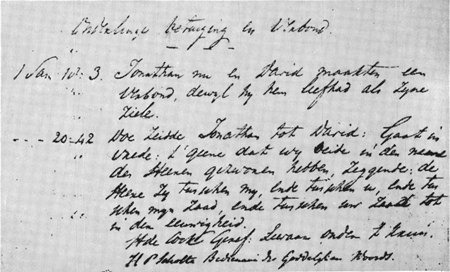 Onderlinge Betuiging en Verbond.
1 Sam 18: 3. Jonathan nu en David maakten een
Verbond, dewyl hy hem liefhad als Zyne
Ziele.
- - - 20:42 Doe Zeidde Jonathan tot David: Gaat in
vrede: t' geene dat wy Beide in den name
des Heeren gezworen hebben, Zeggende: de
Heere Zy tusschen my, ende tusschen u, ende tus
schen myn Zaad, ende tusschen uw Zaad tot
in den eeuwigheid.
H P Scholte Bedienaar des Goddelyken Woords.